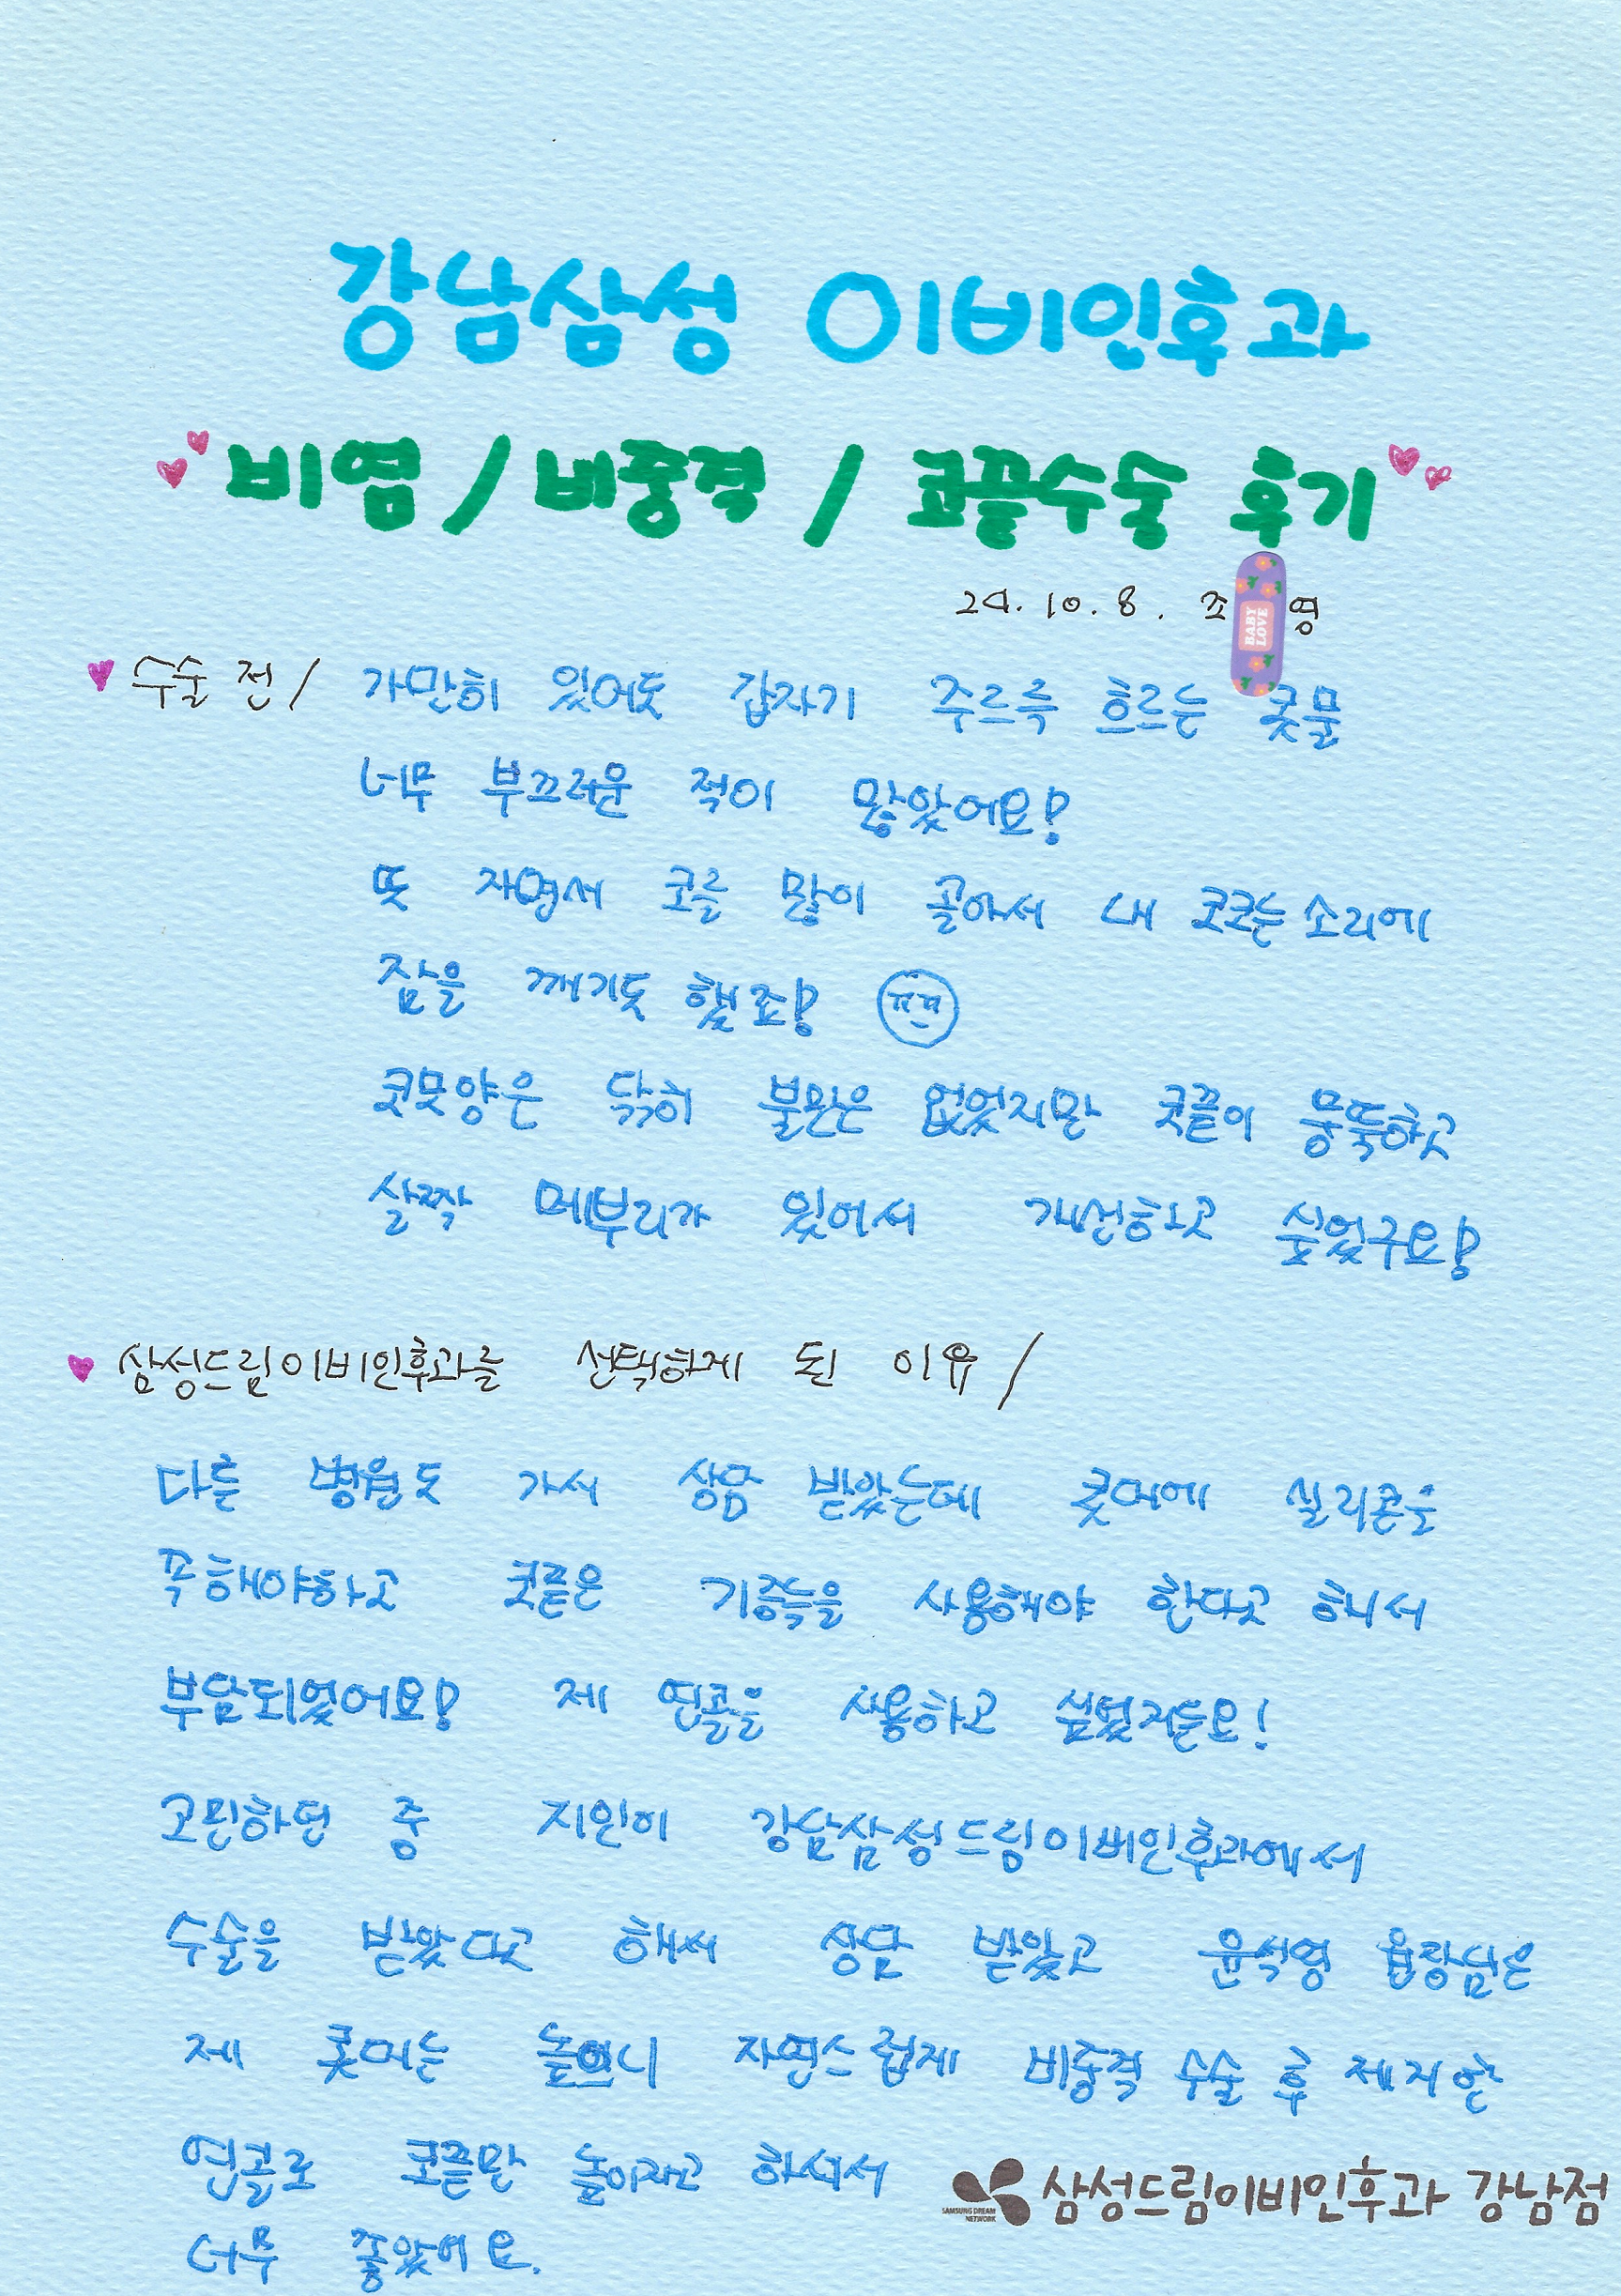 강남삼성 이비인후과
비염 / 비중격 / 코끝수술 후기
24. 10. 8. 조 영
BABY LOVE
수술 전 / 가만히 있어도 갑자기 주르륵 흐르는 콧물
너무 부끄러운 적이 많았어요!
또 자면서 코를 많이 골아서 내 코고는 소리에
잠을 깨기도 했죠! ㅠㅠ
코모양은 딱히 불만은 없었지만 코끝이 뭉뚝하고
살짝 메부리가 있어서 개선하고 싶었구요!
삼성드림이비인후과를 선택하게 된 이유 /
다른 병원도 가서 상담 받았는데 콧대에 실리콘을
꼭 해야하고 코끝은 기증늑을 사용해야 한다고 하니서
부담되었어요! 제 연골을 사용하고 싶었거든요!
고민하던 중 지인이 강남삼성드림이비인후과에서
수술을 받았다고 해서 상담 받았고 윤석영 원장님은
제 콧대는 높으니 자연스럽게 비중격 수술 후 제거한
연골로 코끝만 높이자고 하셔서
너무 좋았어요.
SAMSUNG DREAM NETWORK
삼성드림이비인후과 강남점